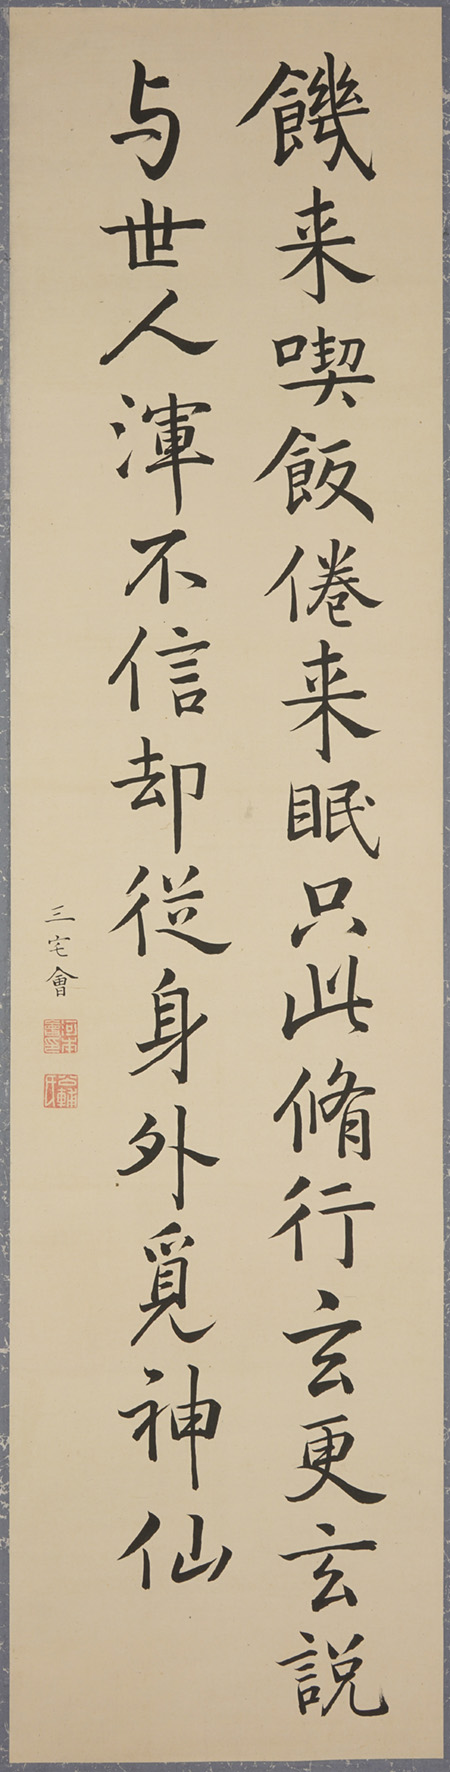 饑来喫飯倦来眠只此脩行玄更玄説
与世人渾不信却從身外覓神仙
三宅會